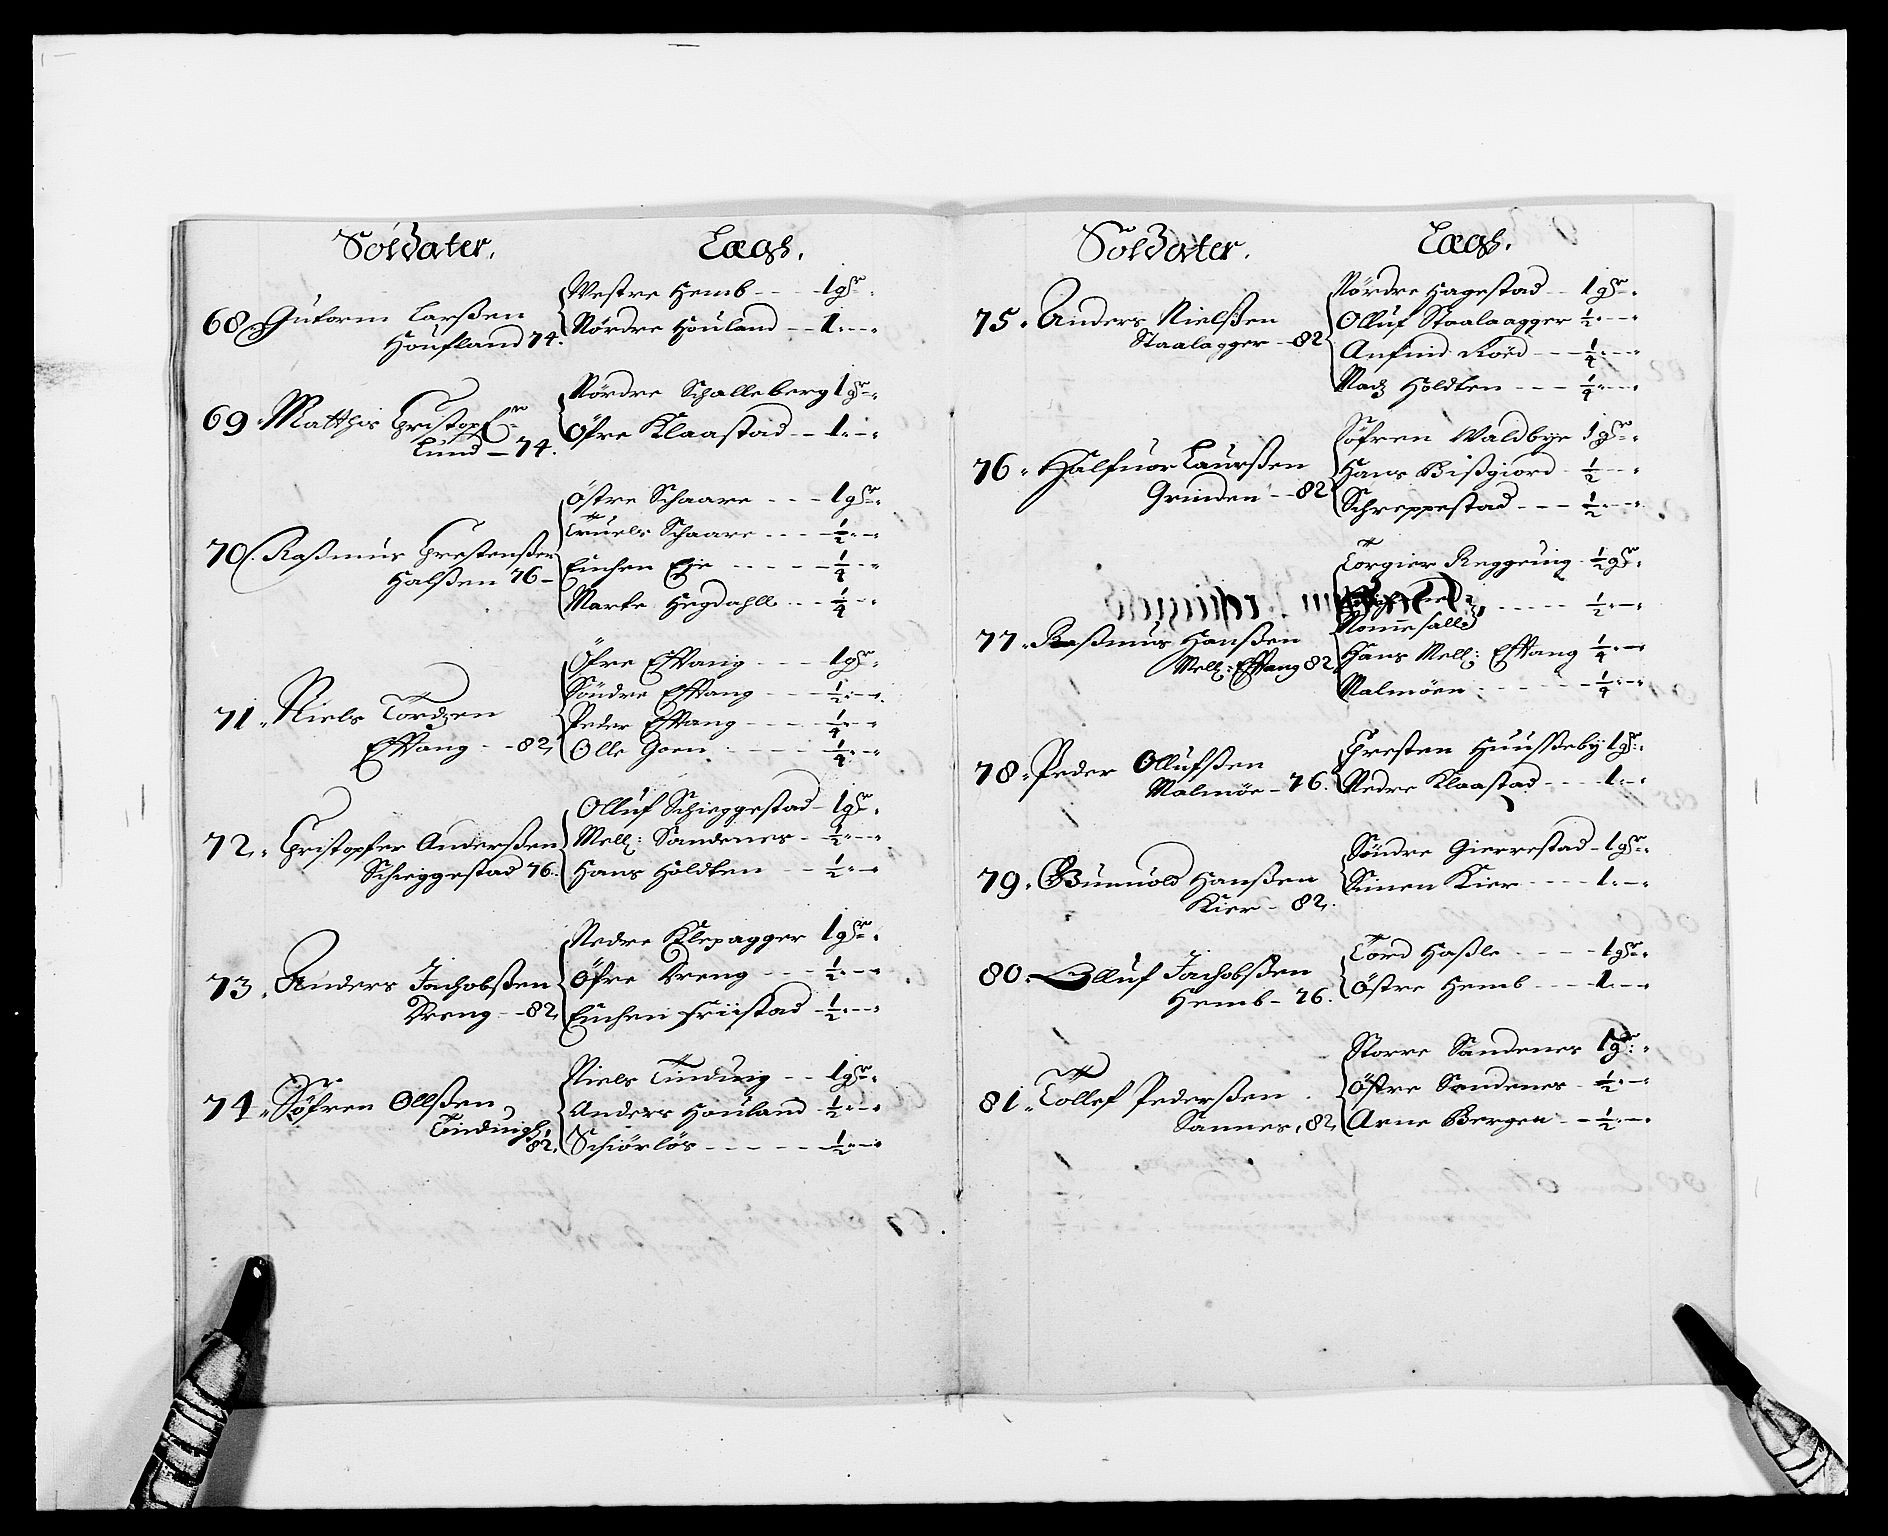 Soldater. Lægh.
68. Gutorm Larßen
Houfland 74.
Westre Hemb - - - 1 gr
Nørdre Houland - - 1 - -
69. Matthis Christopf
Lund - 74.
Nørdre Schalleberg 1 gr
Øfre Klaastad - - 1 - -
70. Raßmus Chrestenßen
Halßen 76 -
Østre Schaare - - - 1 gr
Truels Schaare - - - ½ - -
Enchen Eie - - - - - ¼ - -
Marte Hegdahll - - - ¼ - -
71. Niels Tordzen
Effang - - 82.
Øfre Effang - - - 1 gr
Søndre Effang - - - ½ - -
Peder Effang - - - ¼ - -
Olle Goen - - - - ¼ - -
72. Christopfer Anderßen
Schieggestad 76.
Olluf Schieggestad - 1 gr
Mell: Sandenes - ½ - -
Hans Holdten - - ½ - -
73. Anders Jachobßen
Dreng - - 82.
Nedre Klepagger 1 gr
Øfre Dreng - - - ½ - -
Enchen Friistad - ½ - -
74. Søfren Ollßen
Tindvigh
82.
Niels Tindvig - - 1 gr
Anders Houland ½ - -
Schiørløs - - - - - ½ - -
Soldater. Lægh.
75. Anders Nielßen
Staalagger - 82
Nørdre Hagestad - - 1 gr
Olluf Staalaagger ½ - -
Anfind Roed - - - ¼ - -
Madz Holdten - - - ¼ - -
76. Halfuor Laurßen
Grinden - - 82
Søfren Waldbye 1 gr
Hans Bißgiord - ½ - -
Schreppestad - - - ½ - -
77. Raßmus Hanßen
Mell: Effang 82.
Torgier Reggevig - ½ gr
- - - - - ½ - -
Hans Mell: Effang ¼ - -
Malmøen - - - - - ¼ - -
78. Peder Ollufßen
Malmøe - 76.
Chresten Huusseby 1 gr
Nedre Klaastad - - - 1 - -
79. Gunuold Hanßen
Kier - 82.
Søndre Gierrestad - 1 gr
Simen Kier - - - - 1 - -
80. Olluf Jachobßen
Hemb - 76.
Tord Haßle - - - - 1 gr
Østre Hemb - - - 1 - -
81. Tollef Pederßen
Sannes, 82.
Storre Sandenes 1 gr
Østre Sandenes - ½ - -
Arne Bergen - - ½ - -